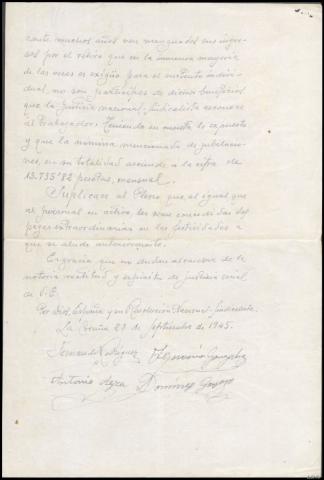 rante muchos años ven menguados sus ingre-
sos por el retiro que en la inmensa mayoría
de las veces es exigüo para el sustento indivi-
dual, no son partícipes de dichos beneficios
que la Justicia nacional sindicalista reconoce
al trabajador. Teniendo en cuenta lo expuesto
y que la nómina mencionada de jubilacio-
nes, en su totalidad asciende a la cifra de
13.735'82 pesetas, mensual.
Suplican al Pleno que, al igual que
al personal en activo, les sean concedidas las
pagas extraordinarias en las festividades a
que se alude anteriormente.
Es gracia que no dudan alcanzar de la
notoria rectitud y espíritu de justicia social
de V.E.
Por Dios, España y su Revolución Nacional-Sindicalista.
La Coruña 27 de Septiembre de 1945.
Fernando Rodríguez Herminio González
Antonio